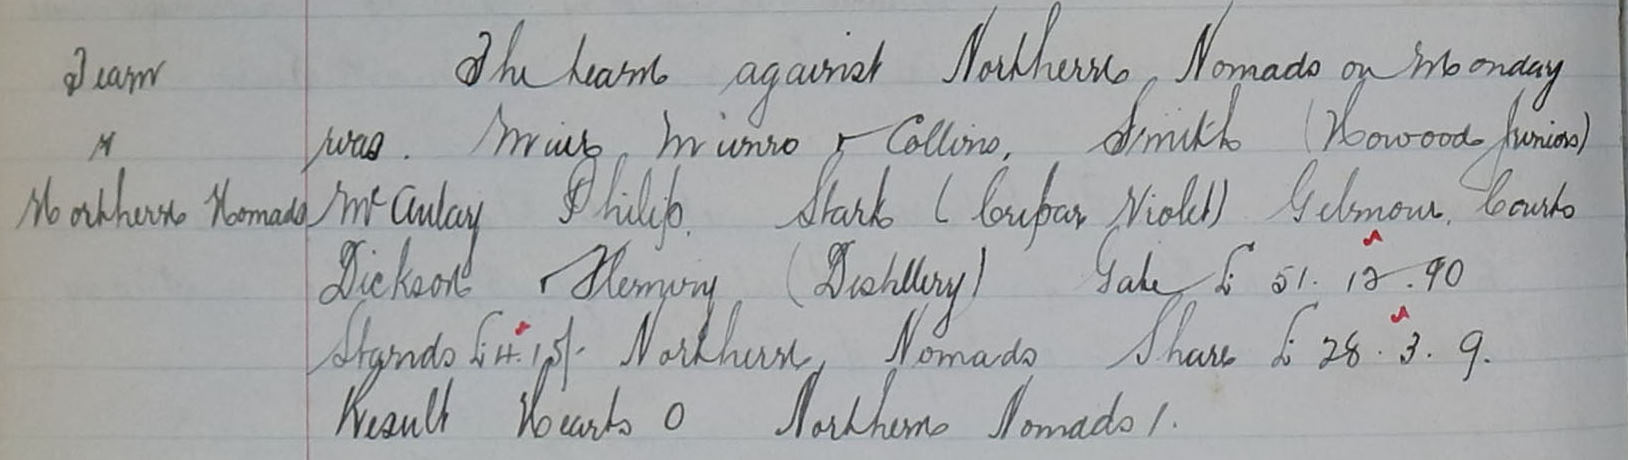 Team The team against Northern Nomads on Monday
v was. Muir, Munro & Collins, Smith (Howood Juniors)
Northern Nomads McAulay Philip, Stark (Cupar Violet) Gilmour, Courts
Dickson & Fleming (Distillery) Gate £ 51. 12. 90
Stands £ 4. 15/- Northern, Nomads Share £ 28. 3. 9.
Result Hearts 0 Northern Nomads 1.